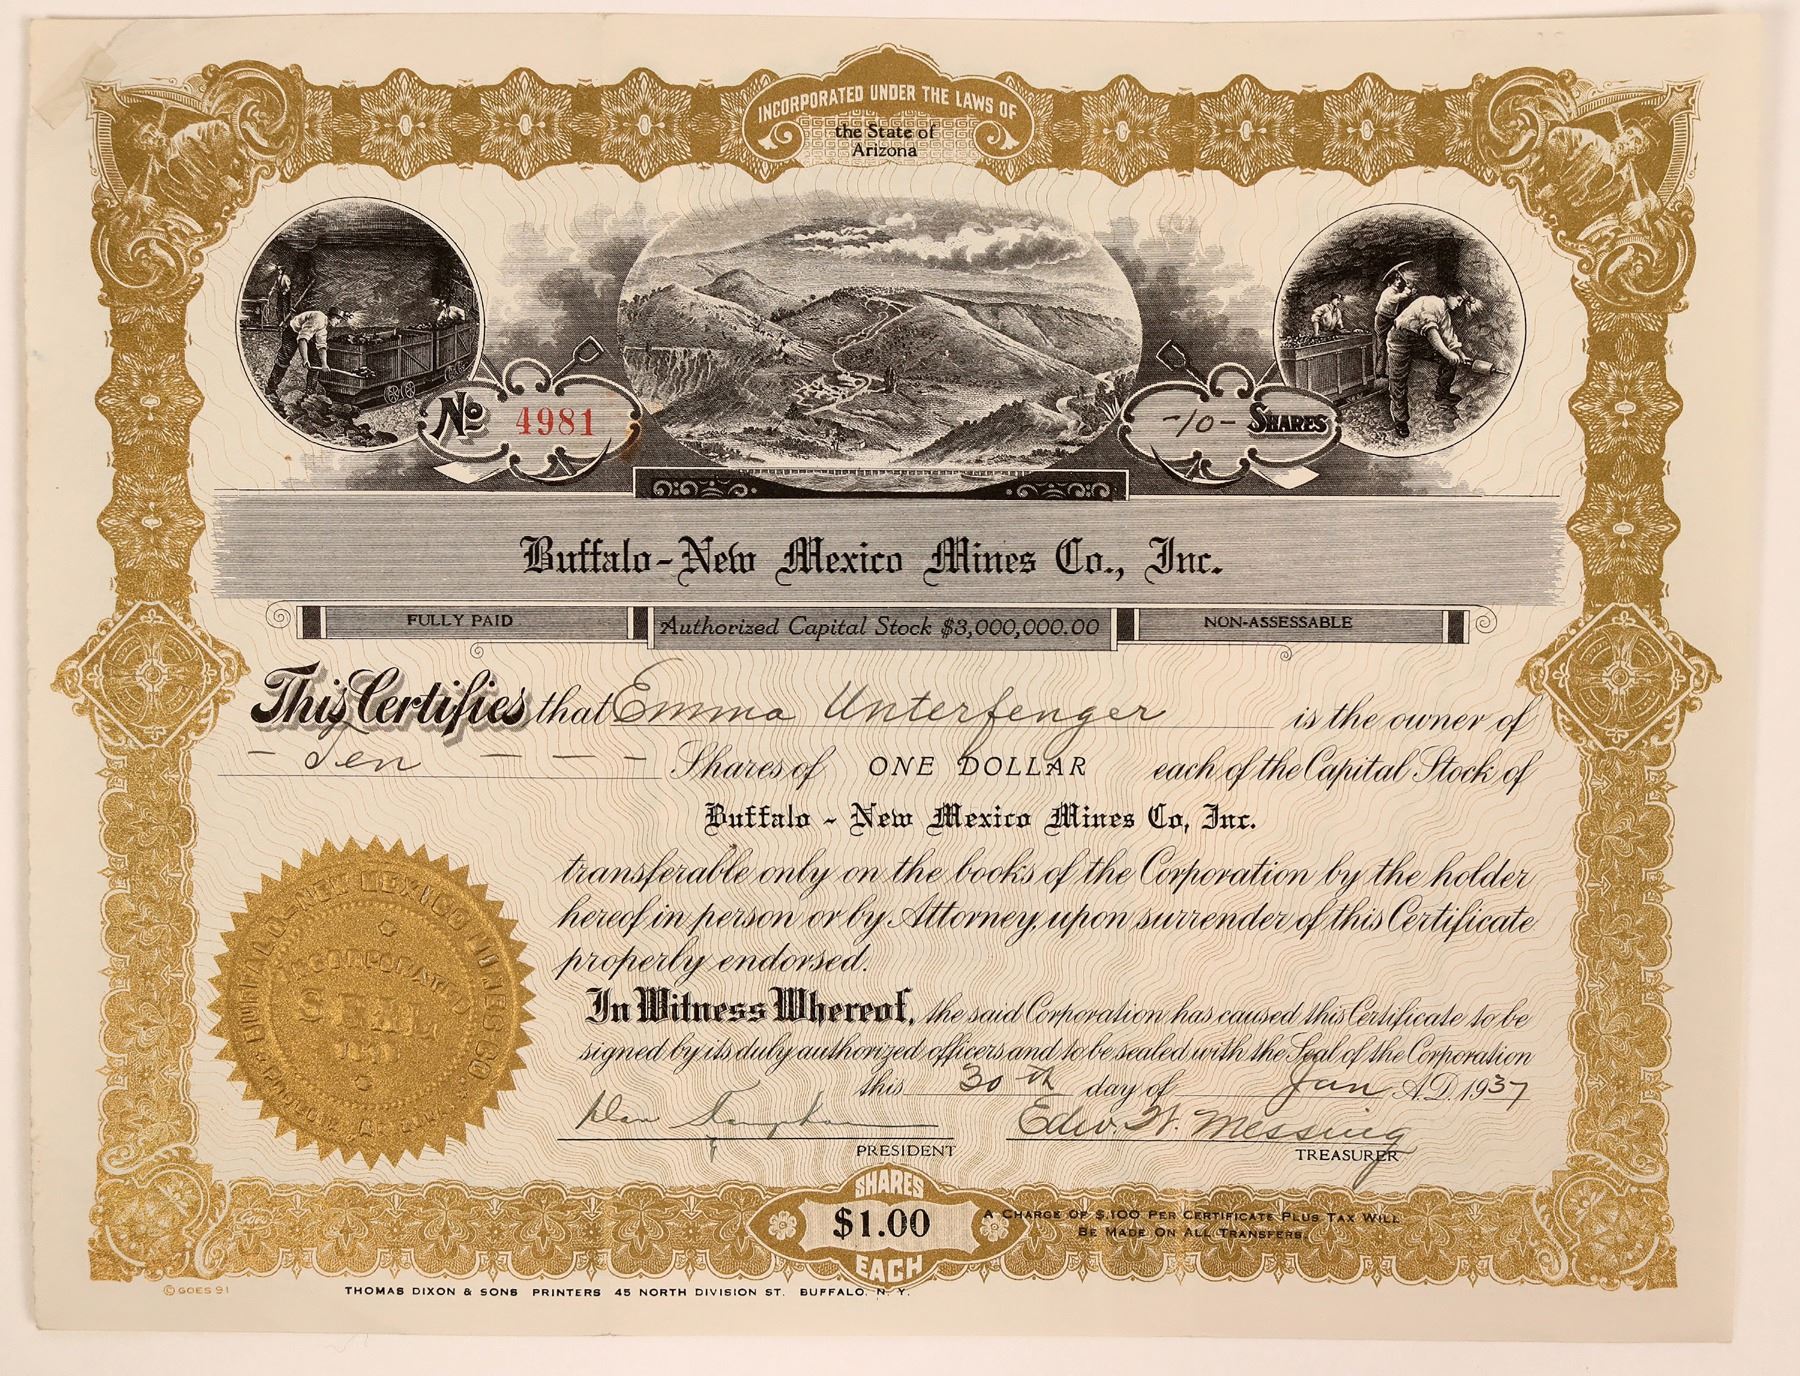 INCORPORATED UNDER THE LAWS OF
the State of
Arizona
No 4981
-10- SHARES
Buffalo-New Mexico Mines Co., Inc.
FULLY PAID
Authorized Capital Stock $3,000,000.00
NON-ASSESSABLE
This Certifies that Emma Unterfenger is the owner of
- Ten - - - - Shares of ONE DOLLAR each of the Capital Stock of
Buffalo - New Mexico Mines Co, Inc.
transferable only on the books of the Corporation by the holder
hereof in person or by Attorney, upon surrender of this Certificate
properly endorsed.
In Witness Whereof, the said Corporation has caused this Certificate to be
signed by its duly authorized officers and to be sealed with the Seal of the Corporation
this 30th day of Jan A.D. 1937
BUFFALO-NEW MEXICO MINES CO
INCORPORATED
SEAL
Dan
Edw. W. Messing
PRESIDENT
TREASURER
SHARES
$1.00
EACH
A CHARGE OF $.100 PER CERTIFICATE PLUS TAX WILL
BE MADE ON ALL TRANSFERS.
© GOES 91
THOMAS DIXON & SONS PRINTERS 45 NORTH DIVISION ST. BUFFALO, N. Y.